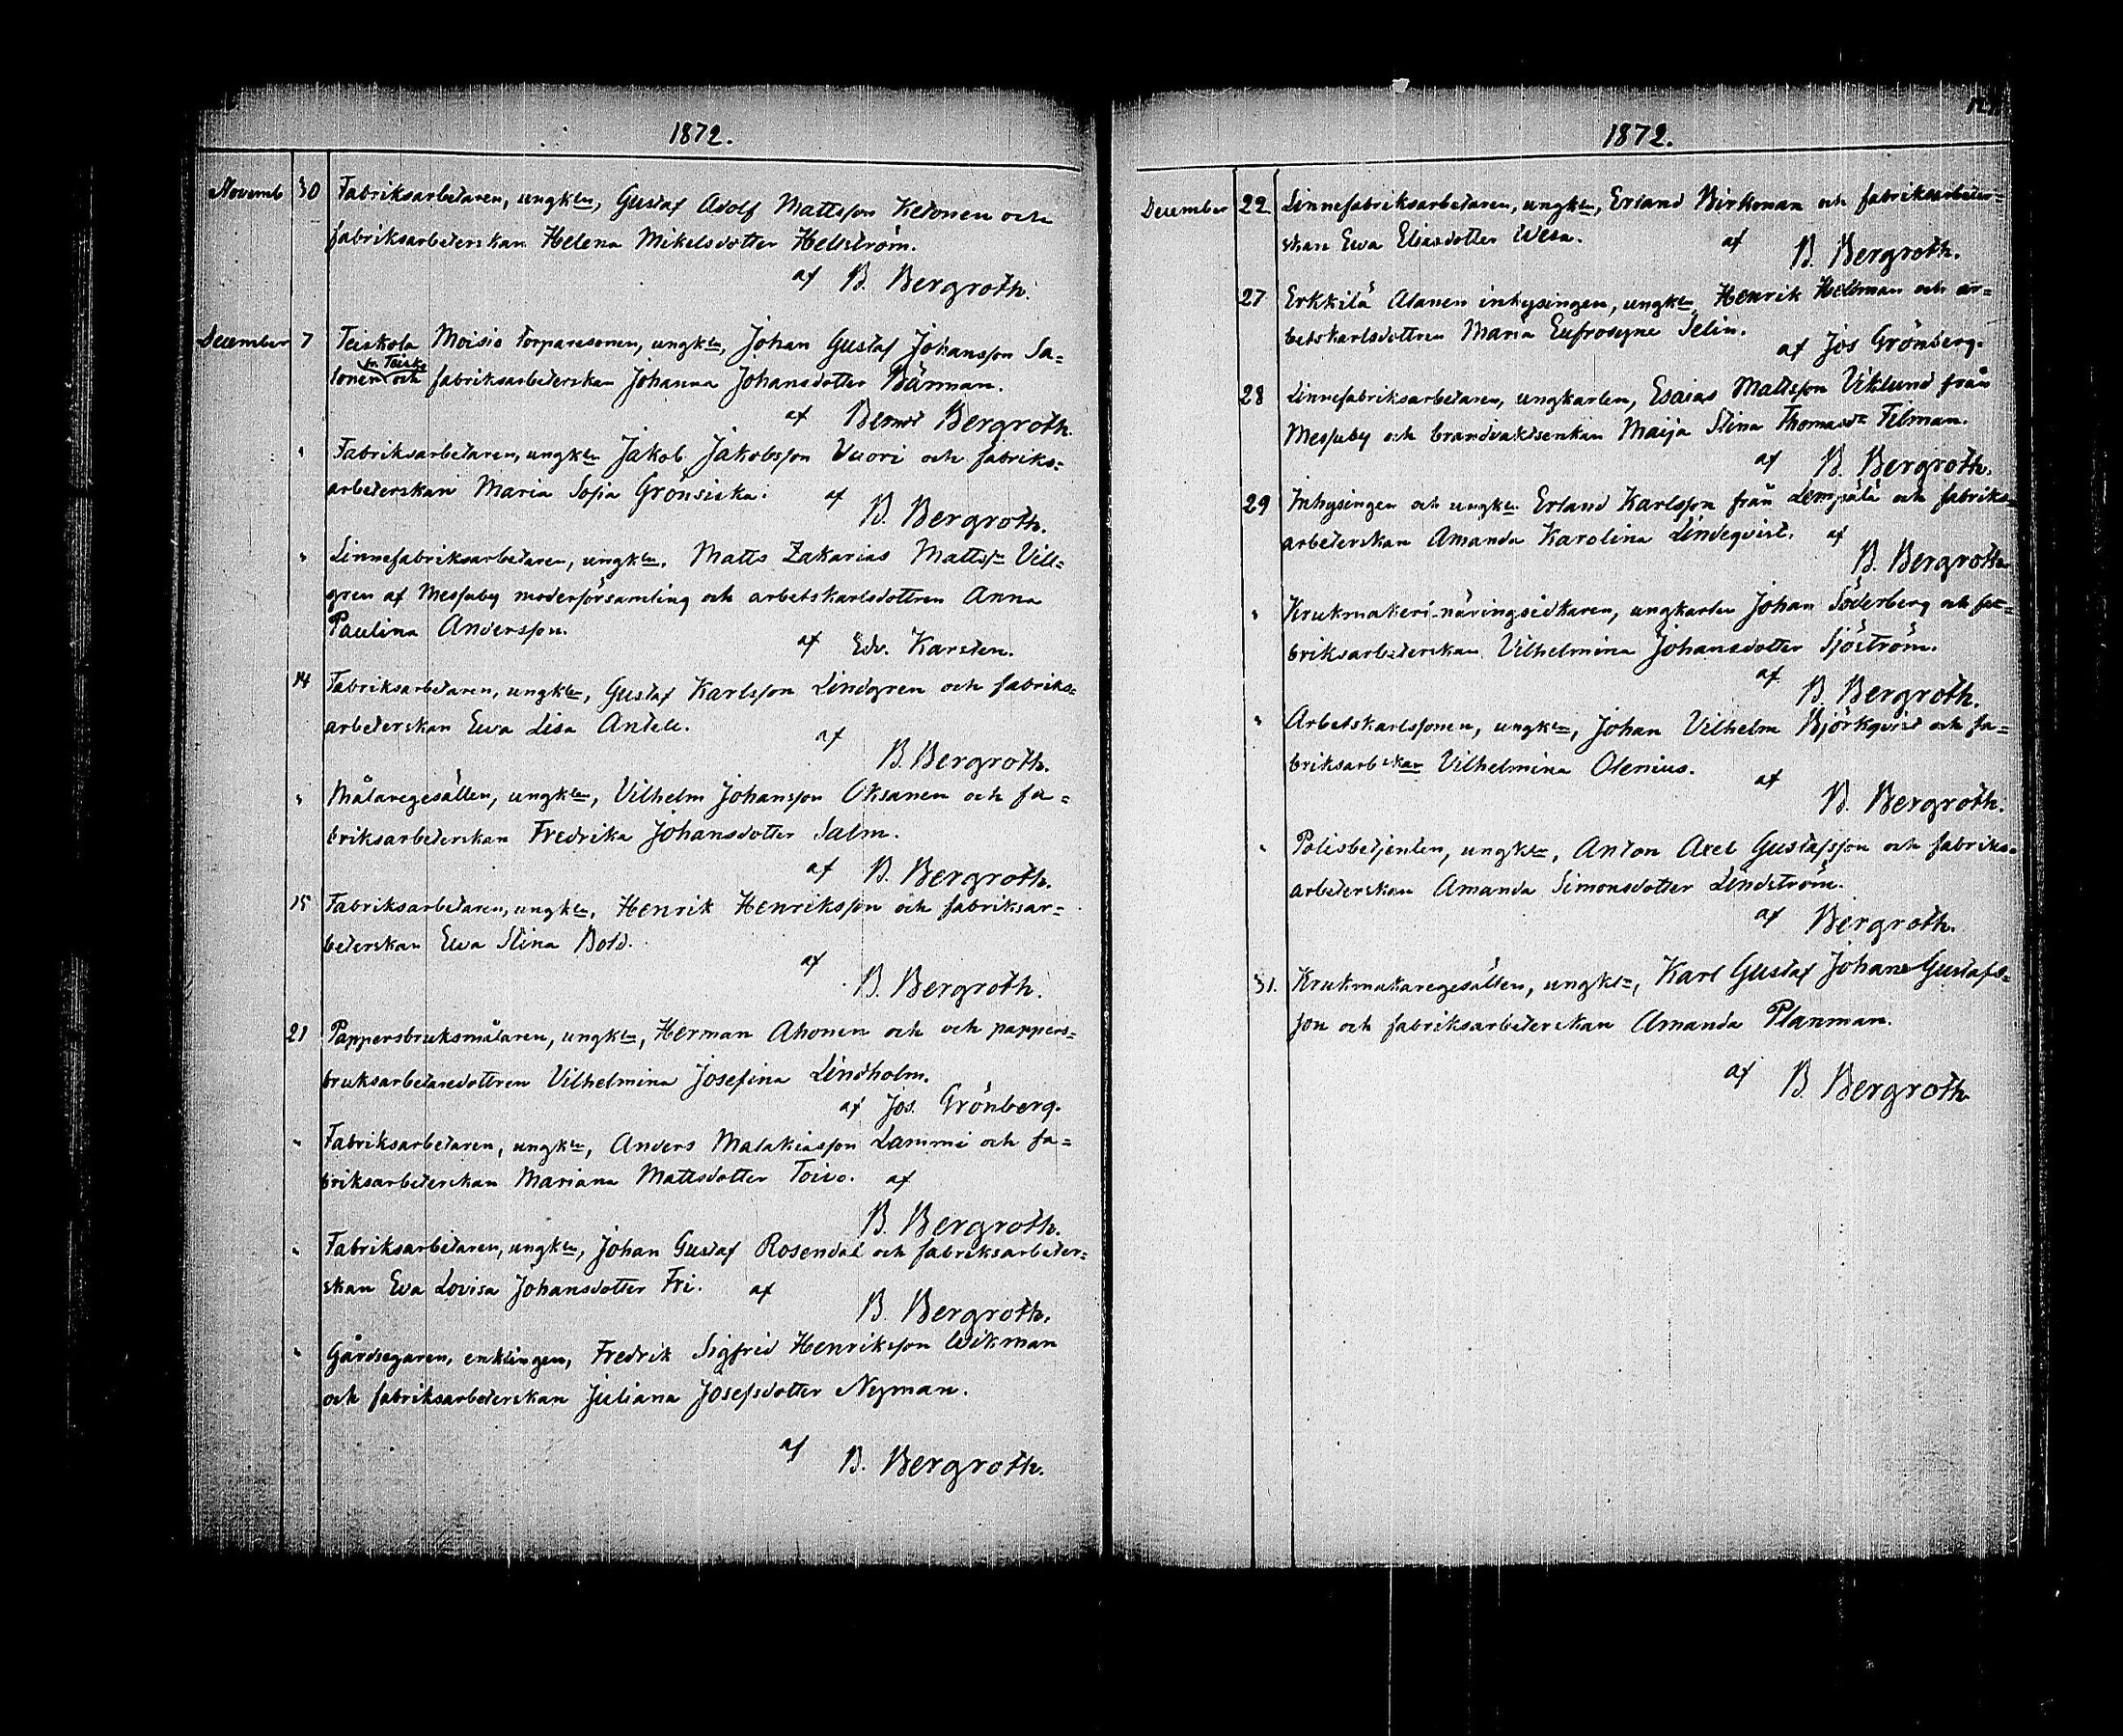 1872.
Novemb 30 Fabriksarbetaren, ungkln, Gustaf Adolf Mattsson Ketonen och
fabriksarbeterskan Helena Mikelsdotter Hellström.
af B. Bergroth.
December 7 Teiskola Moisio torparesonen, ungkln, Johan Gustaf Johansson Sa=
fr. Teisko
lonen och fabriksarbeterskan Johanna Johansdotter Bärman.
af Bernd Bergroth.
" Fabriksarbetaren, ungkln Jakob Jakobsson Vuori och fabriks=
arbeterskan Maria Sofia Grönsiska. af
B. Bergroth.
" Linnefabriksarbetaren, ungkln, Matts Zakarias Mattsn Vill=
gren af Messuby moderförsamling och arbetskarlsdottren Anna
Paulina Andersson.
af Edv. Karsten.
14 Fabriksarbetaren, ungkln, Gustaf Karlsson Lindgren och fabriks=
arbeterskan Ewa Lisa Antell.
af
B. Bergroth.
" Målaregesällen, ungkln, Vilhelm Johansson Oksanen och fa=
briksarbeterskan Fredrika Johansdotter Salm.
af B. Bergroth.
15 Fabriksarbetaren, ungkln, Henrik Henriksson och fabriksar=
beterskan Ewa Stina Bold.
af
B. Bergroth.
21 Pappersbruksmålaren, ungkln, Herman Ahonen och och pappers=
bruksarbetaredottren Vilhelmina Josefina Lindholm.
af Jos. Grönberg.
" Fabriksarbetaren, ungkln, Anders Malakiasson Lammi och fa=
briksarbeterskan Mariana Mattsdotter Toivo. af
B. Bergroth.
" Fabriksarbetaren, ungkln, Johan Gustaf Rosendal och fabriksarbeter=
skan Eva Lovisa Johansdotter Fri. af
B. Bergroth.
" Gårdsegaren, enklingen, Fredrik Sigfrid Henriksson Wikman
och fabriksarbeterskan Juliana Josefsdotter Nyman.
af B. Bergroth.
1872.
December 22 Linnefabriksarbetaren, ungkln, Erland Birkman och fabriksarbeter=
skan Ewa Eliasdotter Wesa. af
B. Bergroth.
27 Erkkilä Alanen inhysingen, ungkln, Henrik Hellman och ar=
betskarlsdottren Maria Eufrosyne Selin.
af Jos Grönberg.
28 Linnefabriksarbetaren, ungkarlen, Esaias Mattsson Viklund från
Messuby och brandvaktsenkan Maija Stina Thomasdr Filman.
af B. Bergroth.
29 Inhysingen och ungkln Erland Karlsson från Lempälä och fabriks=
arbeterskan Amanda Karolina Lindeqvist. af
B. Bergroth
" Krukmakeri-näringsidkaren, ungkarlen Johan Söderberg och fa=
briksarbeterskan Vilhelmina Johansdotter Sjöström.
af
B. Bergroth.
" Arbetskarlssonen, ungkln, Johan Vilhelm Björkqvist och fa=
briksarbskan Vilhelmina Olenius.
af
B. Bergroth.
" Polisbetjenten, ungkln, Anton Axel Gustafsson och fabriks=
arbeterskan Amanda Simonsdotter Lindström.
af Bergroth.
31. Krukmakaregesällen, ungkln, Karl Gustaf Johans Gustafs=
son och fabriksarbeterskan Amanda Planman.
af B. Bergroth